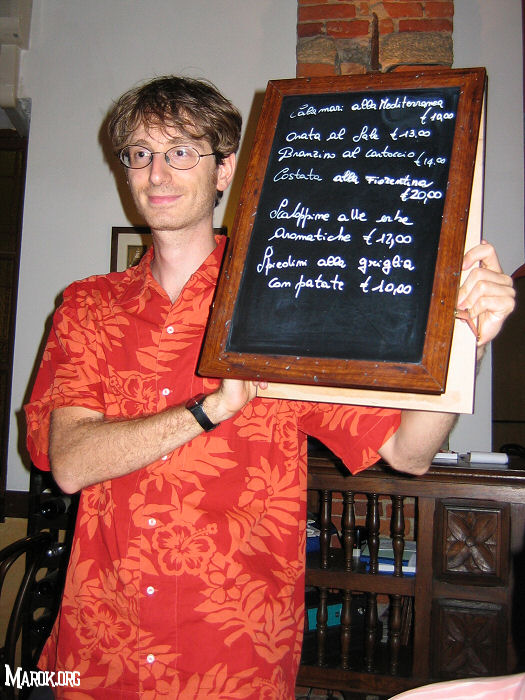 Calamari alla Mediterranea
€ 10,00
Orata al Sale € 13,00
Branzino al cartoccio € 14,00
Costata alla Fiorentina
€ 20,00
Scaloppine alle erbe
Aromatiche € 12,00
Spiedini alla griglia
con patate € 10,00
Marok.org